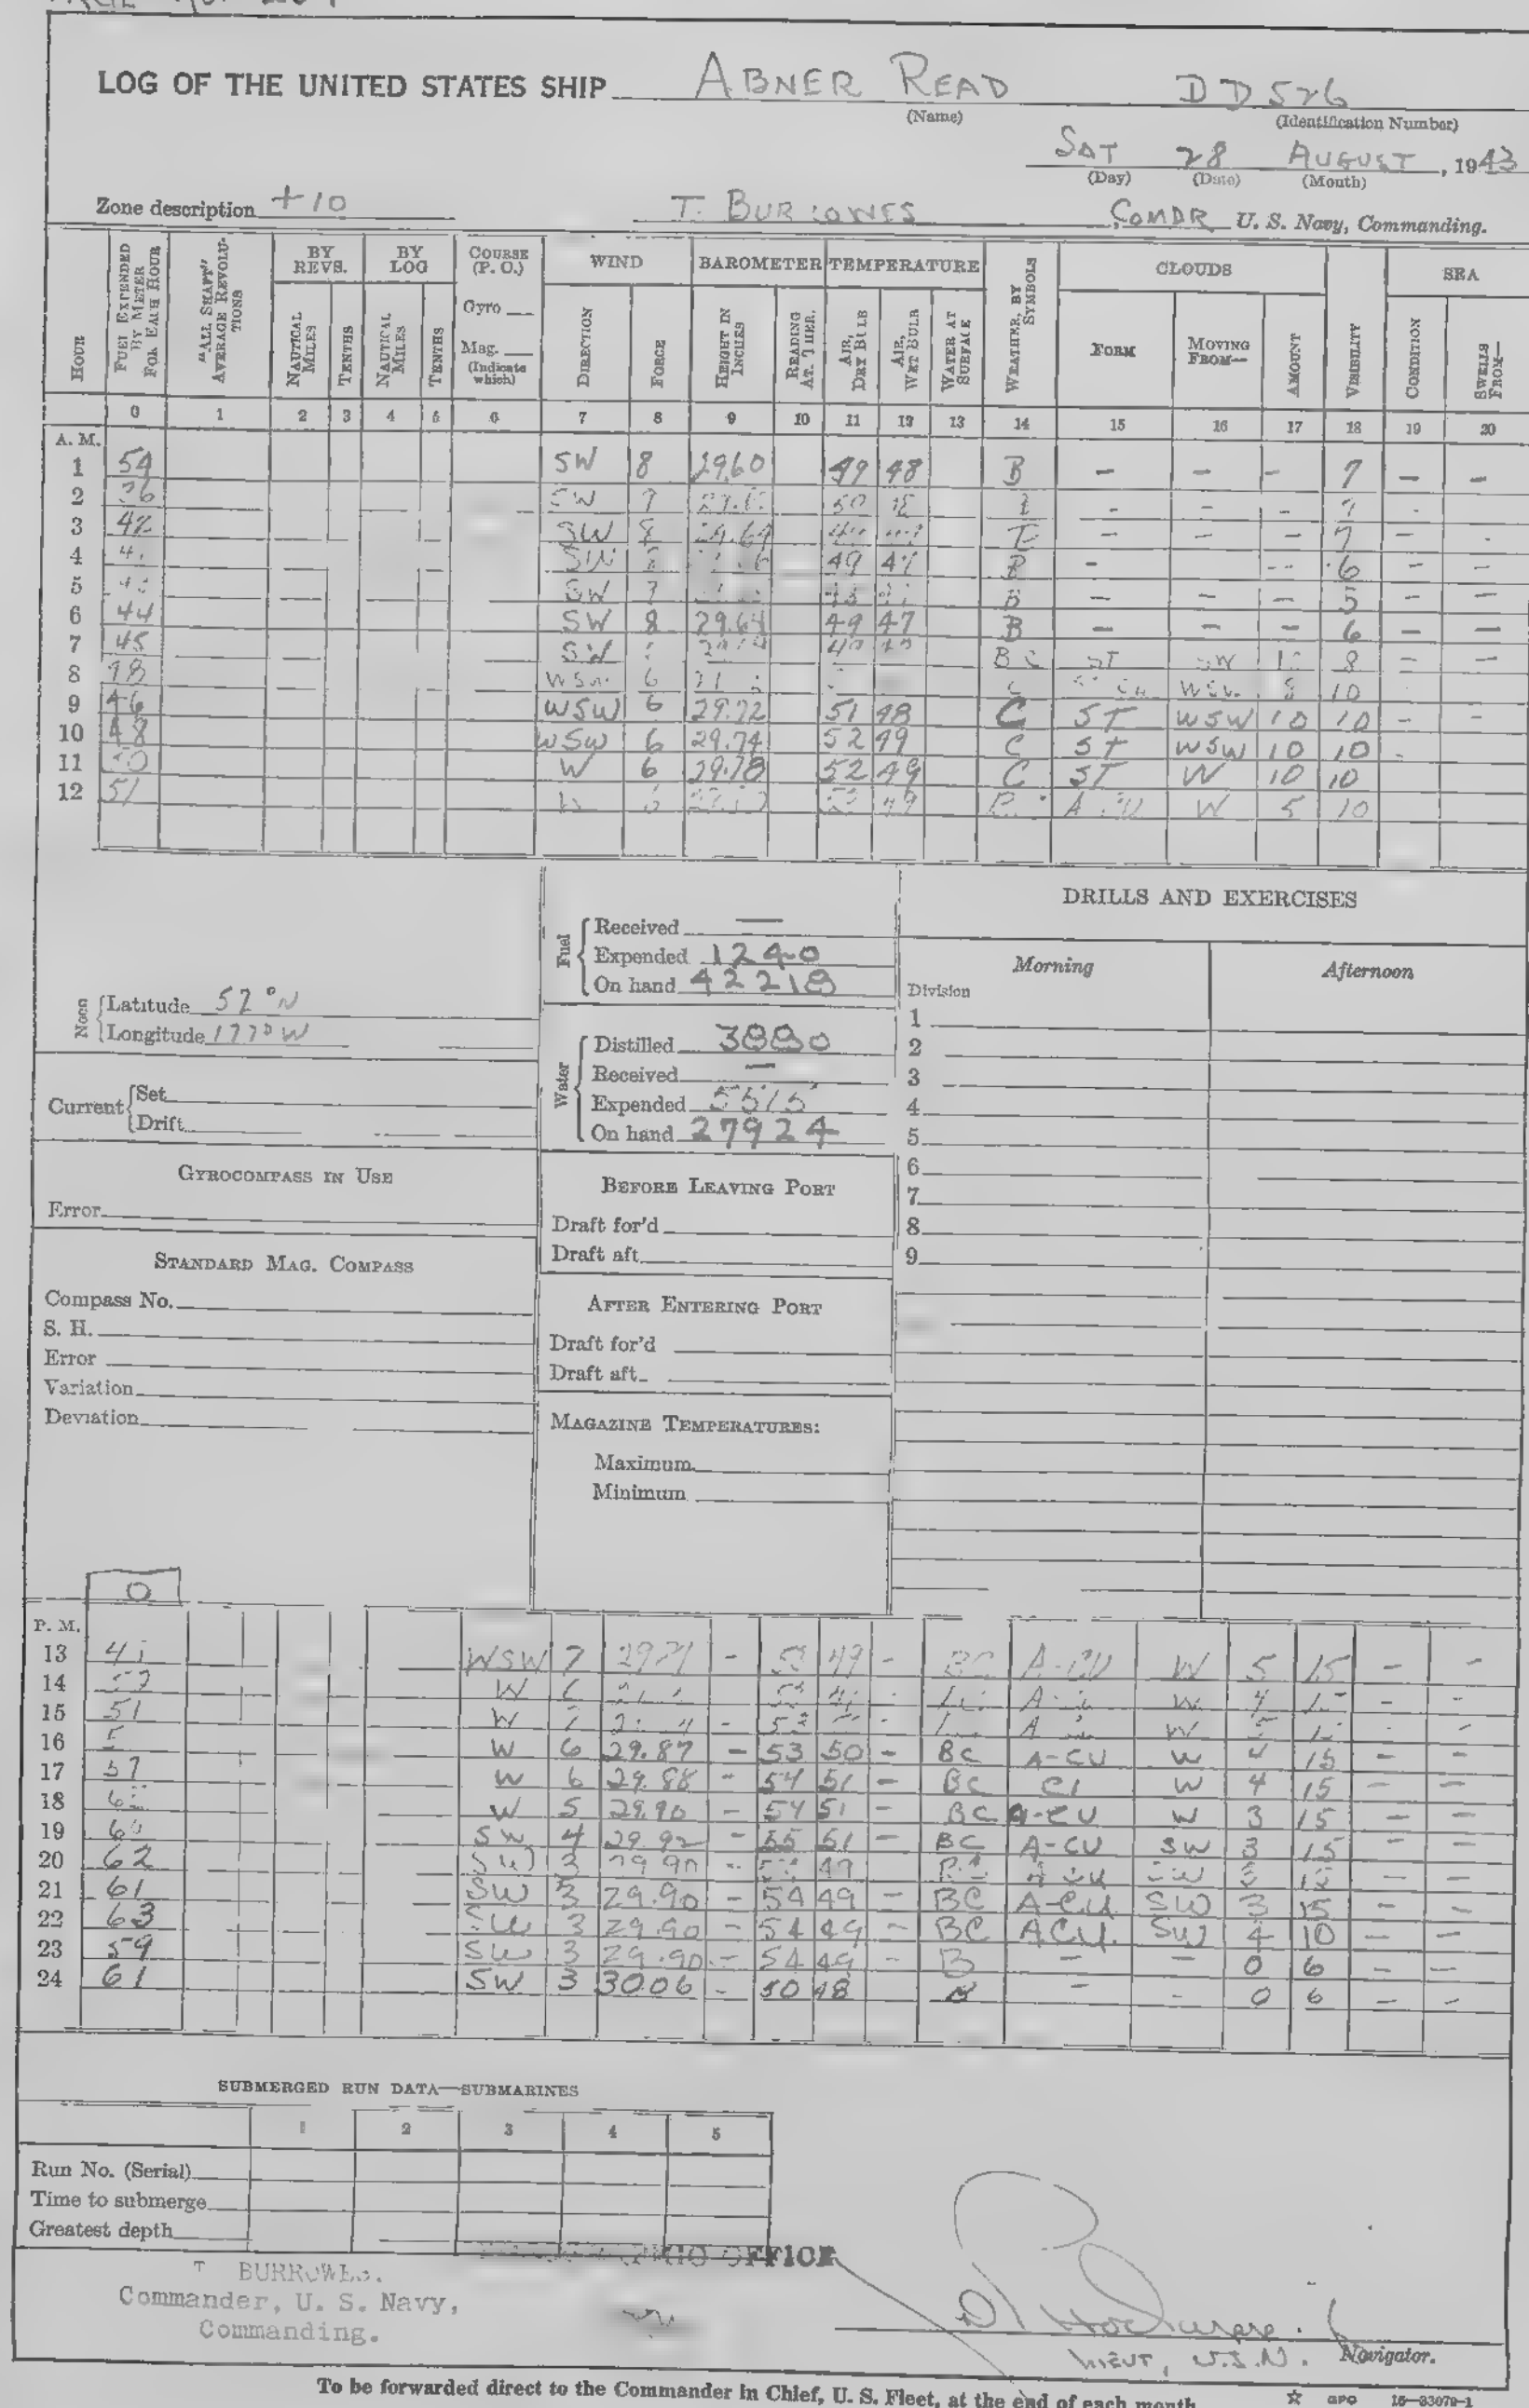 LOG OF THE UNITED STATES SHIP ABNER READ DD 526
(Name) (Identification Number)
SAT 28 AUGUST, 1943
(Day) (Date) (Month)
Zone description +10 T. BURROWES COMDR U. S. Navy, Commanding.
HOUR FUEL EXPENDED BY METER FOR EACH HOUR "ALL SHAFT" AVERAGE REVOLUTIONS BY REVS. BY LOG COURSE (P. O.) WIND BAROMETER TEMPERATURE WEATHER, BY SYMBOLS CLOUDS VISIBILITY SEA
NAUTICAL MILES TENTHS NAUTICAL MILES TENTHS Gyro Mag. (Indicate which) DIRECTION FORCE HEIGHT IN INCHES READING AT. THER. AIR, DRY BULB AIR, WET BULB WATER AT SURFACE FORM MOVING FROM— AMOUNT CONDITION SWELLS FROM—
0 1 2 3 4 5 6 7 8 9 10 11 12 13 14 15 16 17 18 19 20
A. M.
1 54 SW 8 29.60 49 48 B - - - 7 - -
2 SW 7 50 - - -
3 42 SW 8 29.64 - - - 7 -
4 SW 49 47 B - -- 6 - -
5 SW 7 B - - - 5 - -
6 44 SW 8 29.64 49 47 B - - - 6 - -
7 45 SW BC ST SW 8 - -
8 WSW 6 10
9 46 WSW 6 29.72 51 48 C ST WSW 10 10 - -
10 48 WSW 6 29.74 52 49 C ST WSW 10 10 -
11 50 W 6 29.78 52 49 C ST W 10 10
12 51 W 49 W 5 10
Noon Latitude 52°N
Longitude 177°W
Current Set
Drift
GYROCOMPASS IN USE
Error
STANDARD MAG. COMPASS
Compass No.
S. H.
Error
Variation
Deviation
Fuel Received —
Expended 1240
On hand 42218
Water Distilled 3880
Received —
Expended 5515
On hand 27924
BEFORE LEAVING PORT
Draft for'd
Draft aft
AFTER ENTERING PORT
Draft for'd
Draft aft
MAGAZINE TEMPERATURES:
Maximum
Minimum
DRILLS AND EXERCISES
Morning Afternoon
Division
1
2
3
4
5
6
7
8
9
0
P. M.
13 WSW 7 29.71 - 53 49 - BC A-CU W 5 15 - -
14 W W 4 - -
15 51 W - 53 W - -
16 W 6 29.87 - 53 50 - BC A-CU W 4 15 - -
17 57 W 6 29.88 - 54 51 - BC CI W 4 15 - -
18 W 5 29.90 - 54 51 - BC A-CU W 3 15 - -
19 60 SW 4 29.92 - 55 51 - BC A-CU SW 3 15 - -
20 62 SW 3 29.90 - 49 SW 15 - -
21 61 SW 3 29.90 - 54 49 - BC A-CU SW 3 15 - -
22 63 SW 3 29.90 - 54 49 - BC ACU. SW 4 10 - -
23 59 SW 3 29.90 - 54 49 - B - - 0 6 - -
24 61 SW 3 30.06 - 50 48 B - - 0 6 - -
SUBMERGED RUN DATA—SUBMARINES
1 2 3 4 5
Run No. (Serial)
Time to submerge
Greatest depth
OFFICE
T BURROWES.
Commander, U. S. Navy,
Commanding.
LIEUT, U.S.N. Navigator.
To be forwarded direct to the Commander in Chief, U. S. Fleet, at the end of each month
☆ GPO 16—33079-1